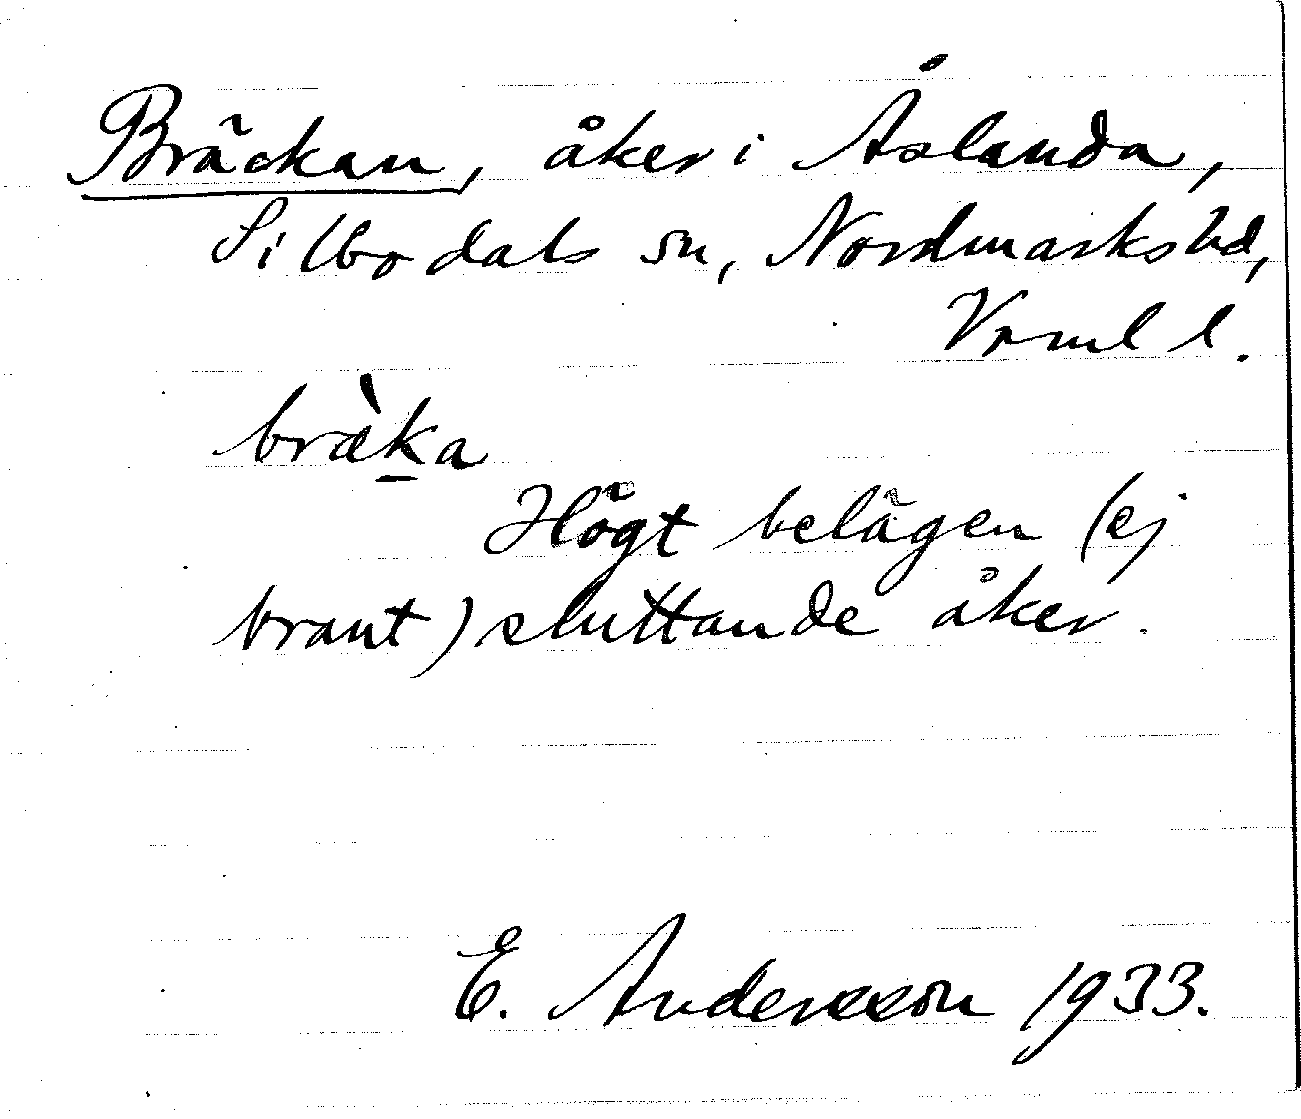 Bräckan, åker i Åslanda,
Silbodals sn, Nordmarks hd,
Vrml l.
bræ̀ka
Högt belägen (ej
brant) sluttande åker.
E. Andersson 1933.